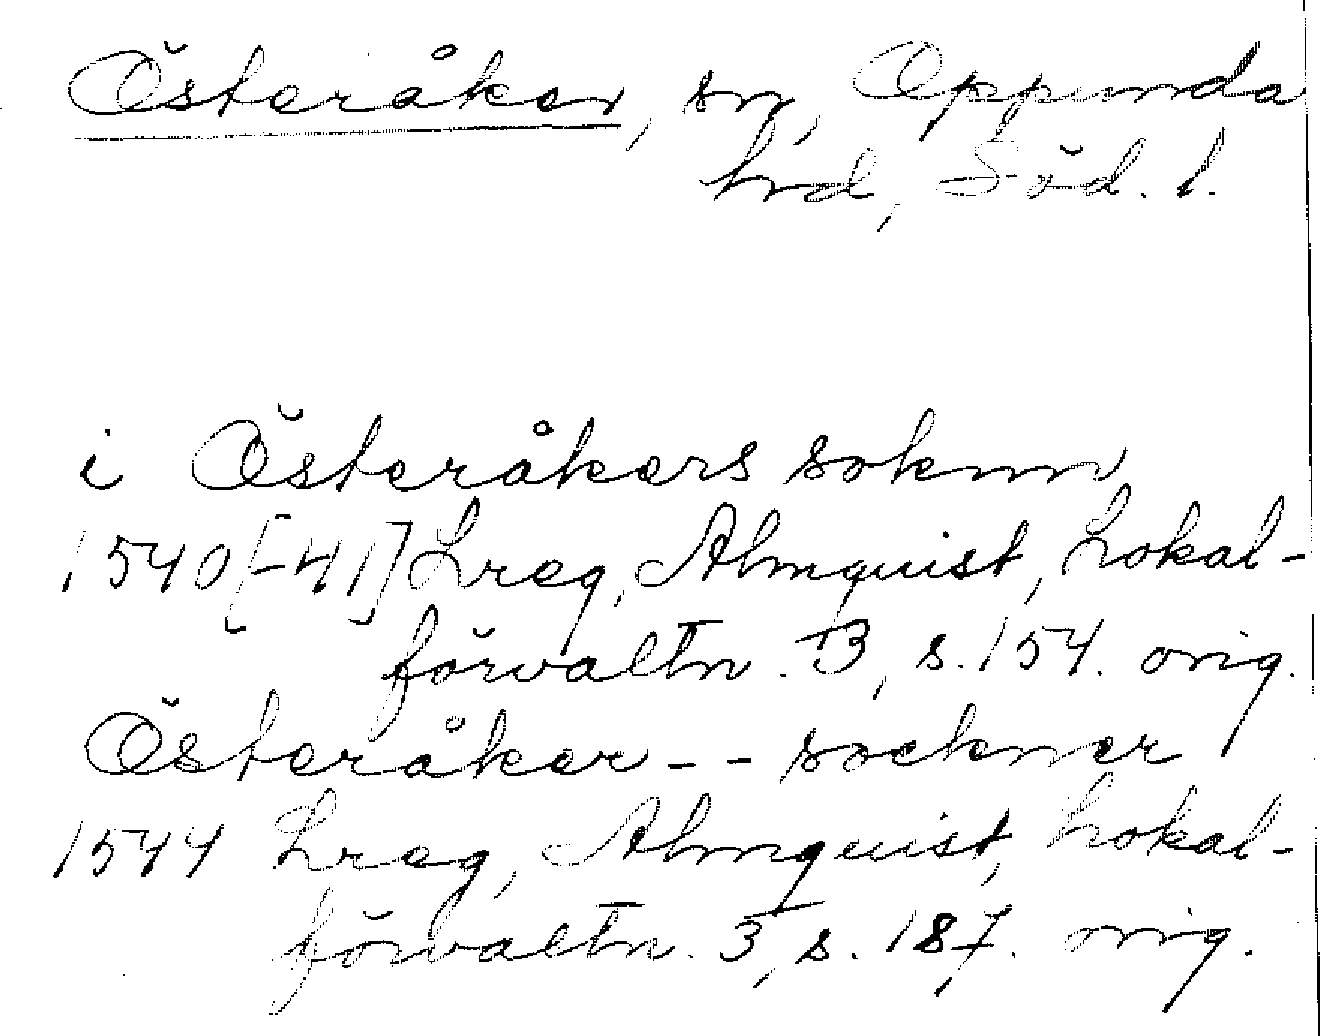 Österåker, sn, Oppunda
hrd, Söd. l.
i Österåkers soknn
1540[-41] Lreg, Almquist, Lokal-
förvaltn. 3, s. 154. orig.
Österåker - - sockner
1544 Lreg, Almquist, Lokal-
förvaltn. 3, s. 187. orig.